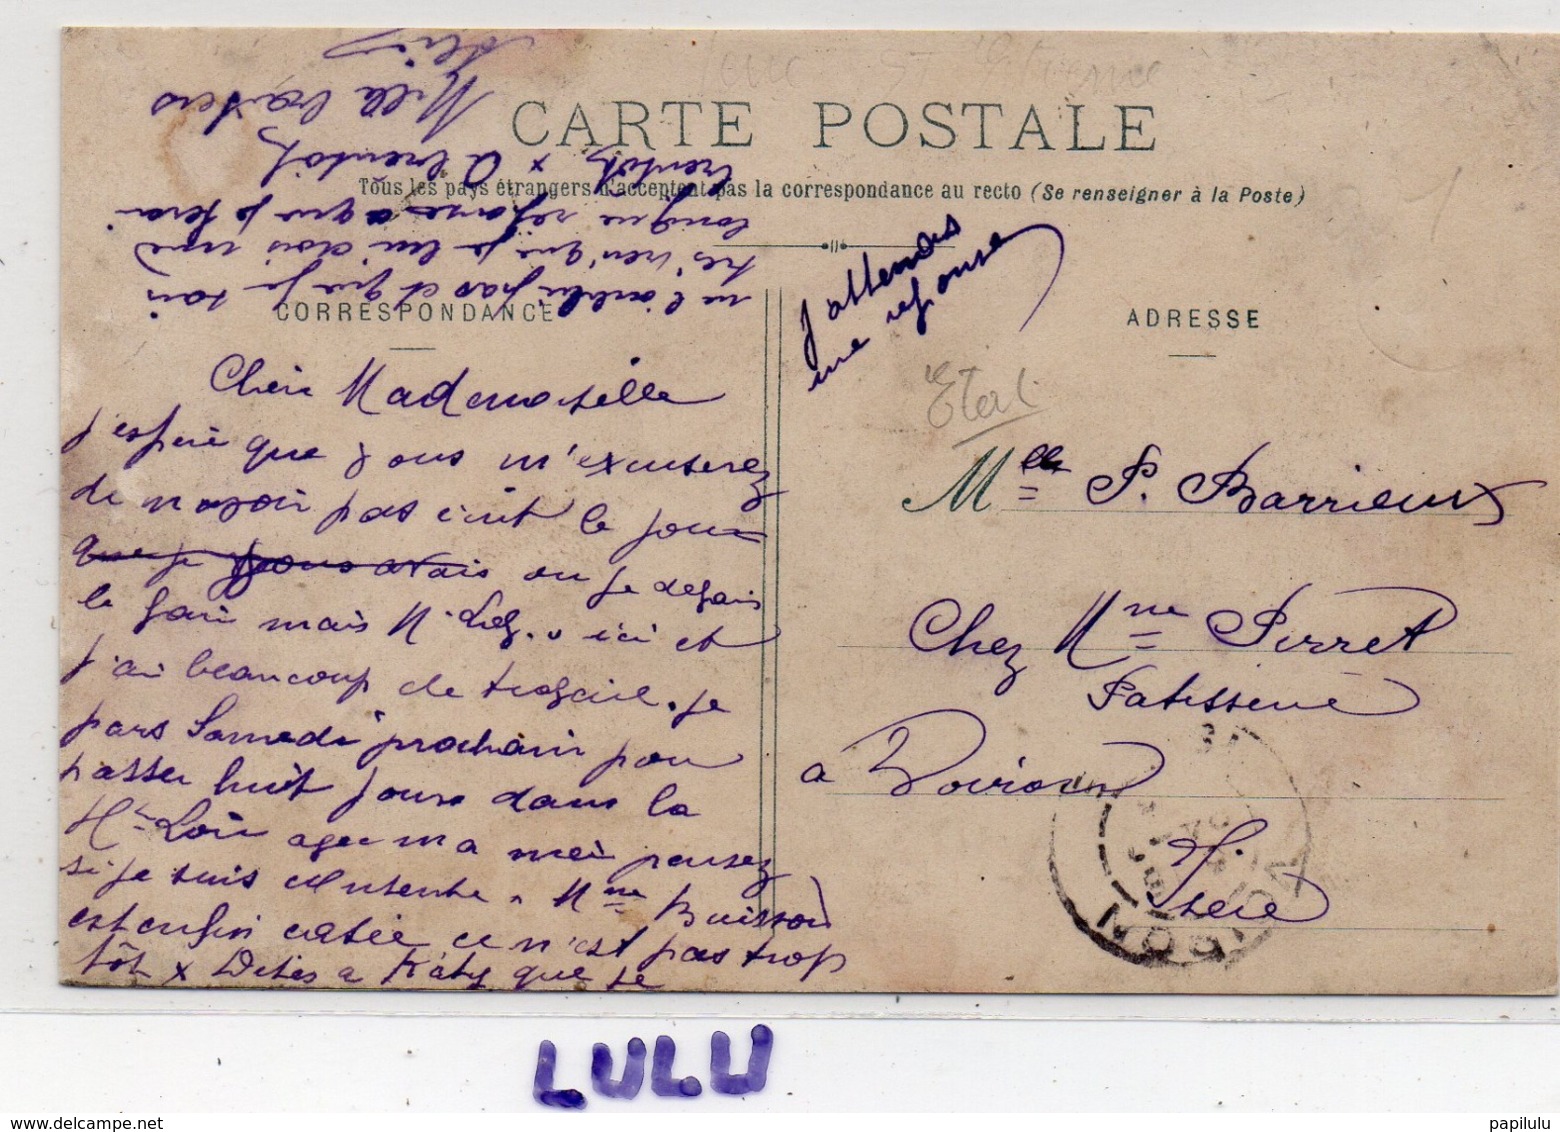 CARTE POSTALE
Tous les pays étrangers n'acceptent pas la correspondance au recto (Se renseigner à la Poste)
CORRESPONDANCE
ADRESSE
Cheir Mademoiselle
j'espère que vous m'excuserez
de n'avoir pas écrit le jour
que je vous avais ou je desais
le fair mais M. ici et
j'ai beaucoup de travail. je
pars Samedi prochain pour
passer huit jours dans la
Hte Loire avec ma mèr pensez
si je suis contente. Mme Buisson
est enfin casée ce n'est pas trop
tôt x Dites a Katy que je
ne l'oublie pas et que je sais
très bien que je lui dois une
longue réponse a que je ferai
bientôt x A bientôt
Mille baisers
j'attends
une reponse
Etat
Mlle P. Barrieux
Chez Mme Perret
Patisserie
a Voiron
Isère
VOIRON
LULU
papilulu
www.delcampe.net